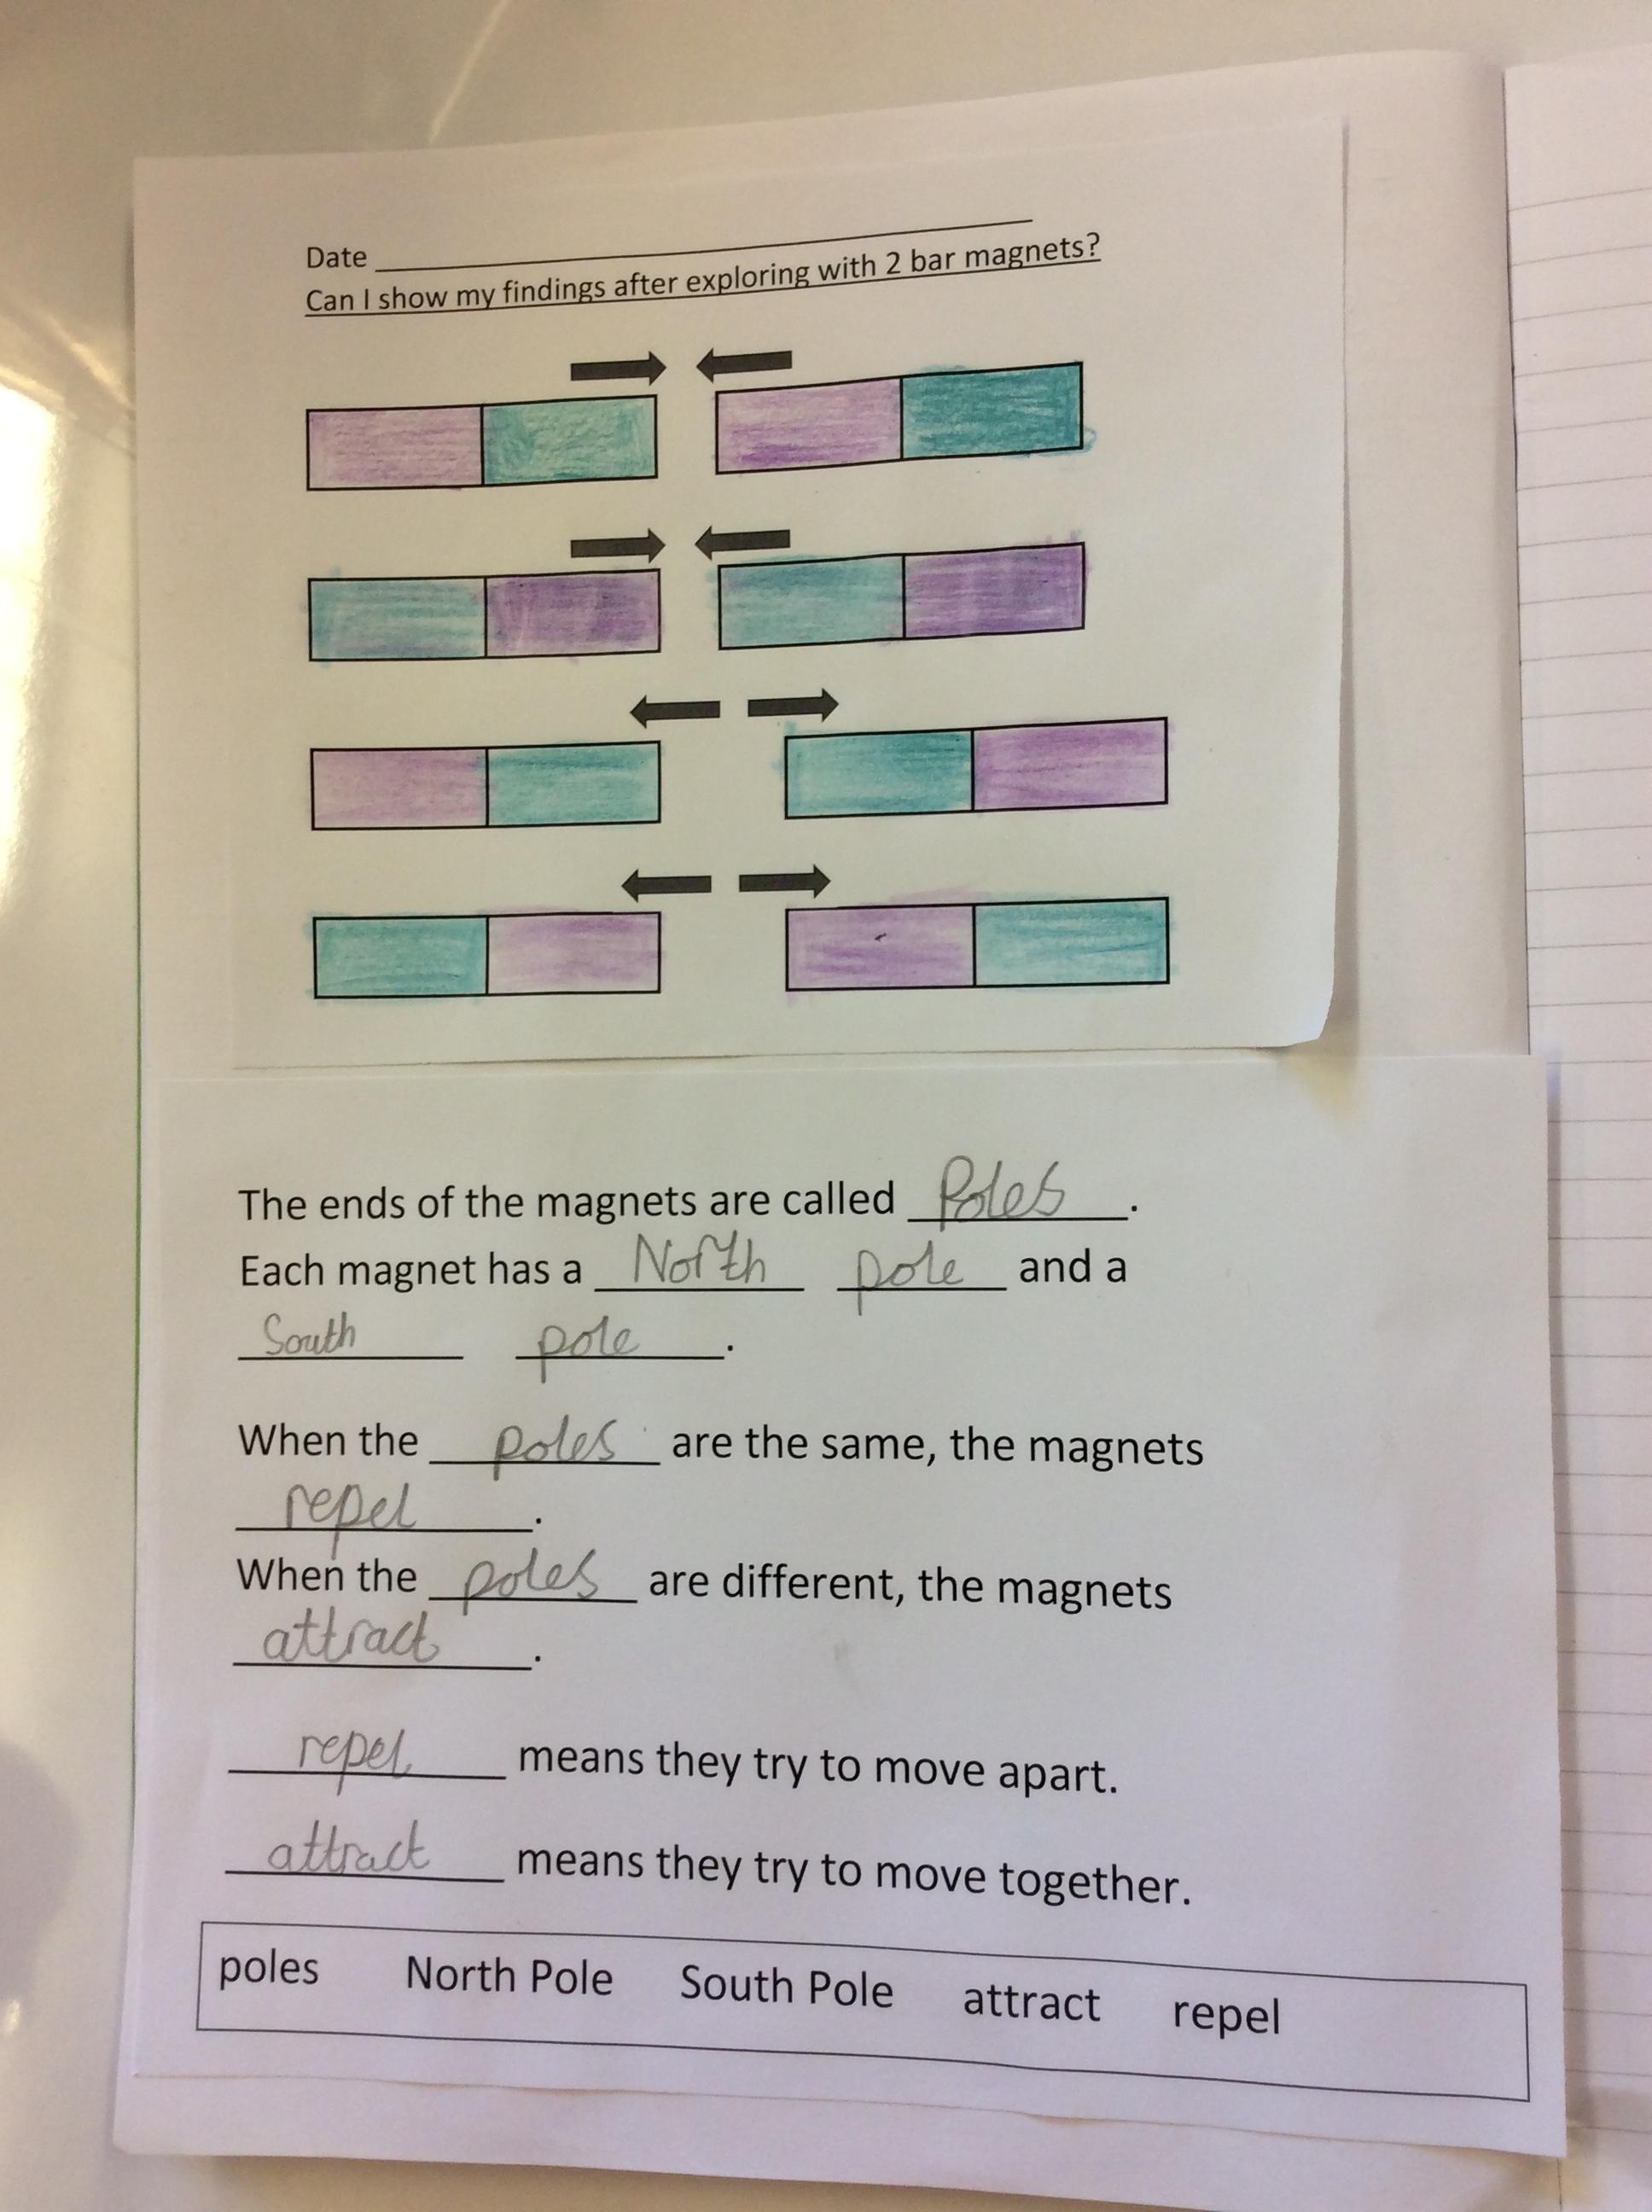 Date
Can I show my findings after exploring with 2 bar magnets?
The ends of the magnets are called Poles.
Each magnet has a North pole and a
South pole.
When the poles are the same, the magnets
repel.
When the poles are different, the magnets
attract.
repel means they try to move apart.
attract means they try to move together.
poles North Pole South Pole attract repel